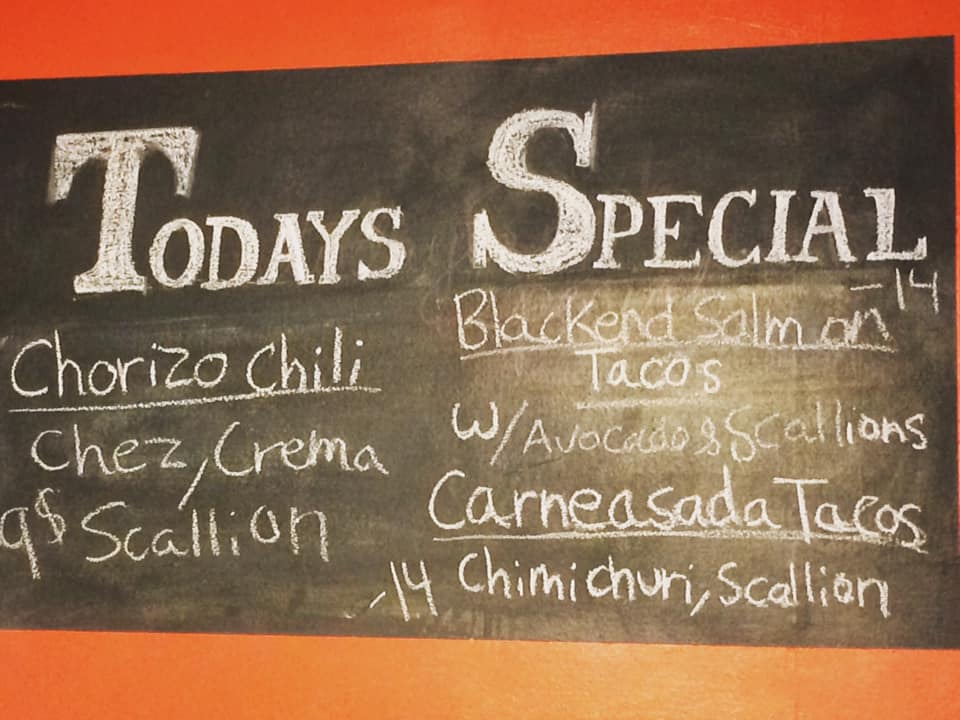 TODAYS SPECIAL
Chorizo Chili
Chez, Crema
Scallion
-14
Blackend Salmon
Tacos
W/Avocado & Scallions
Carneasada Tacos
-14 Chimichuri, Scallion